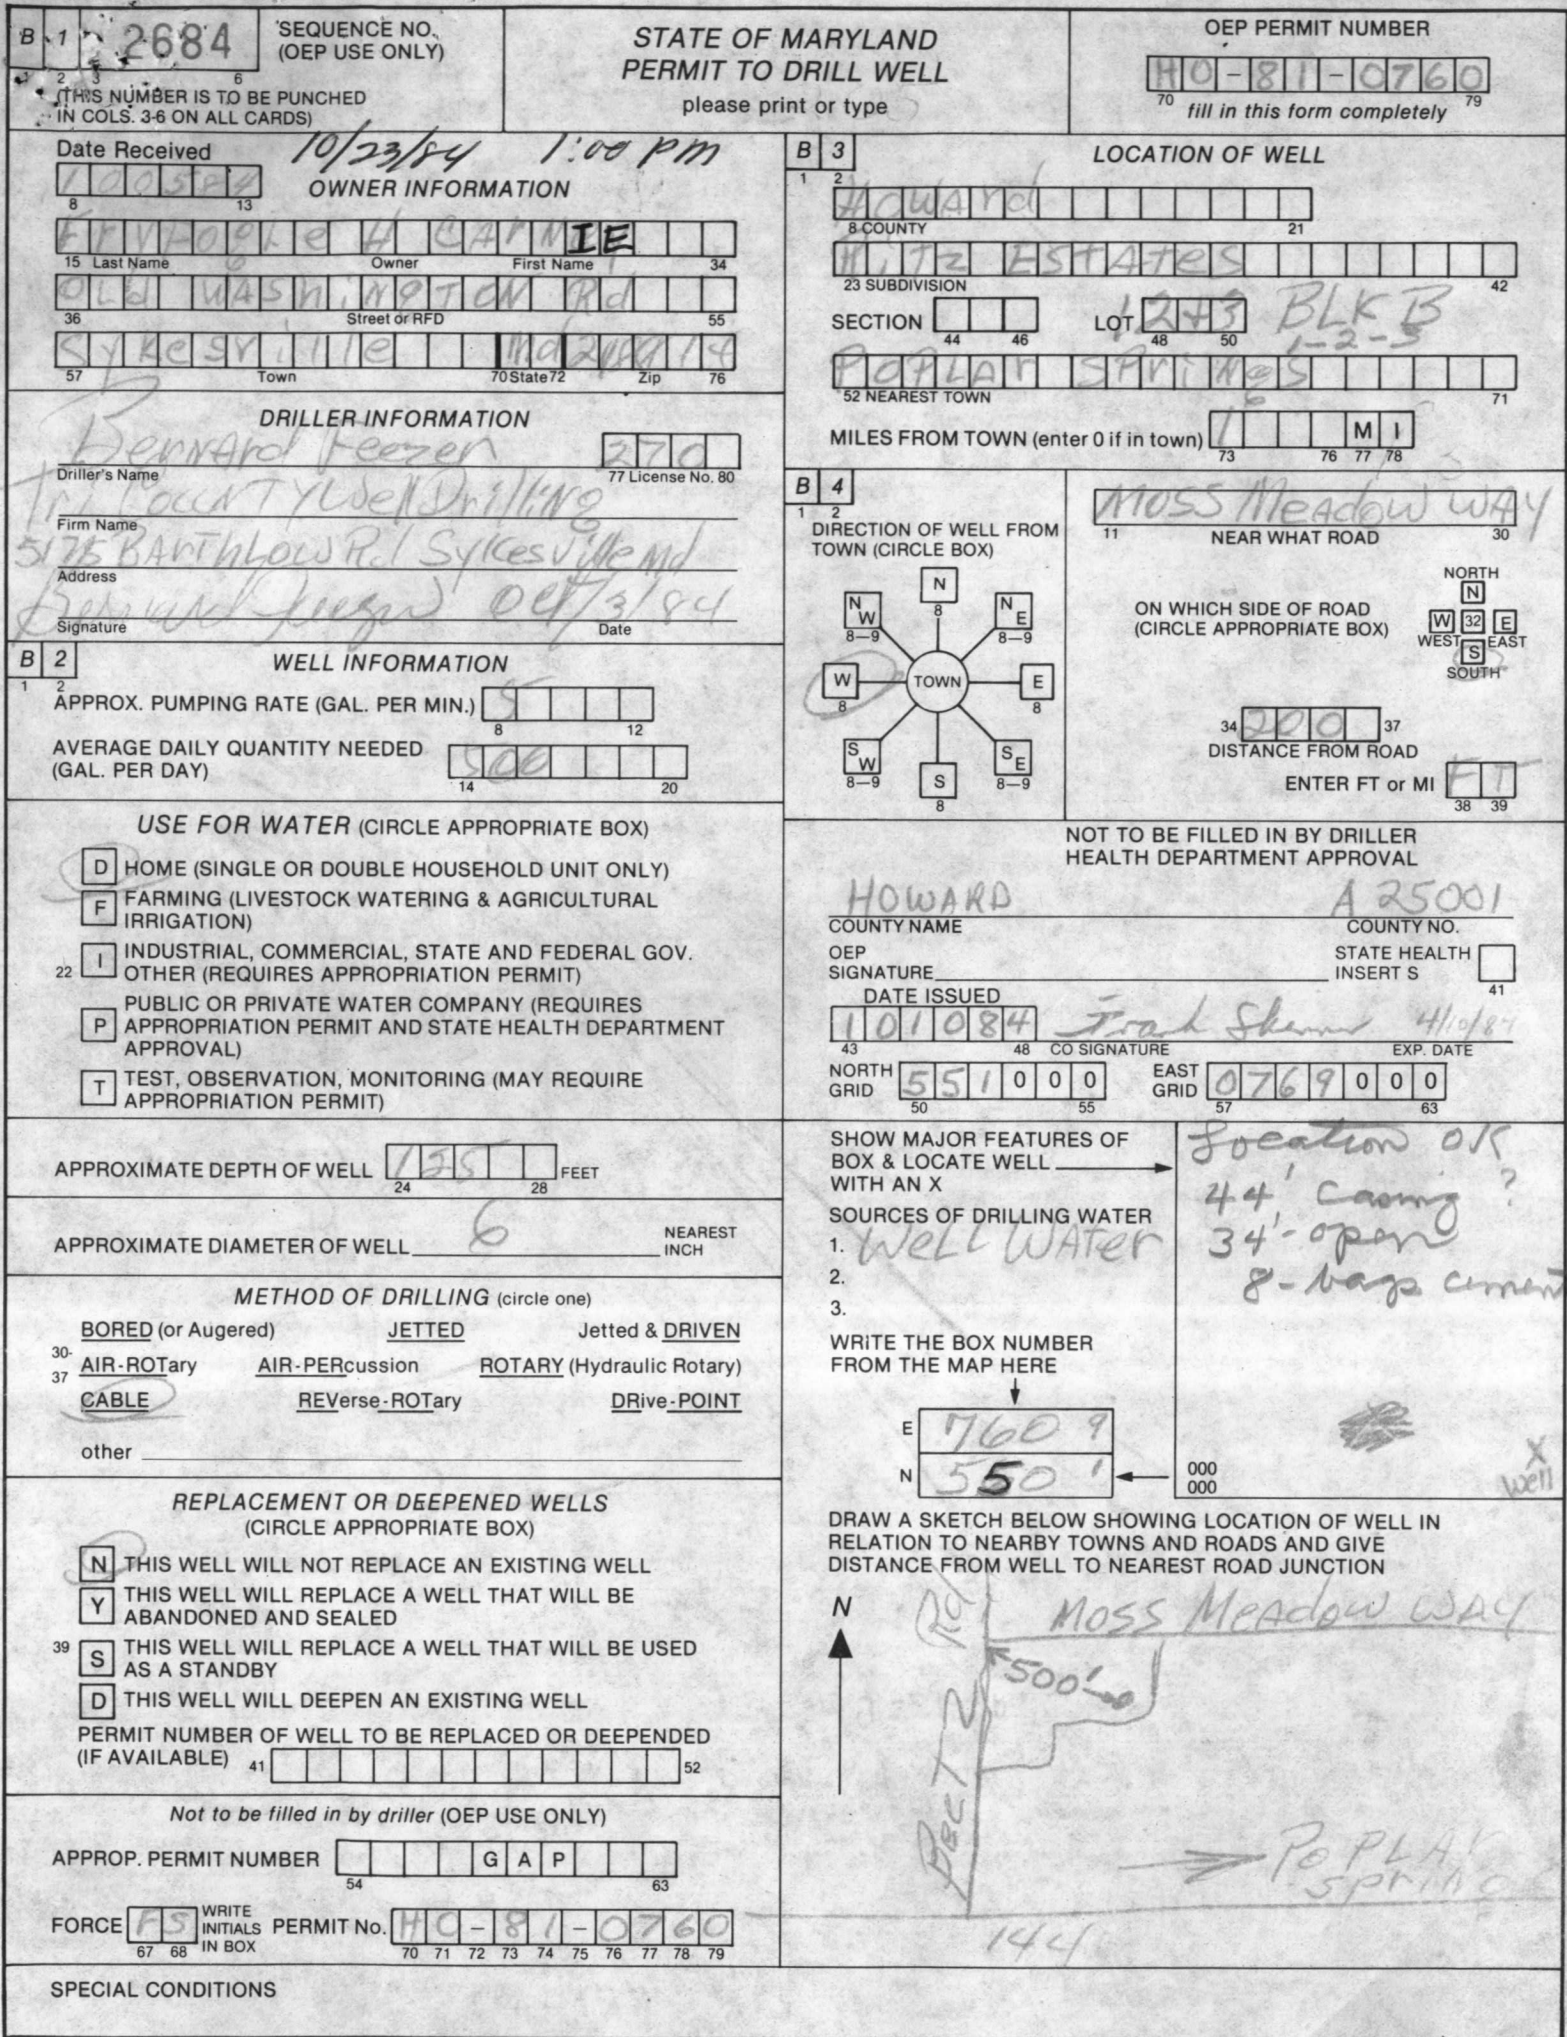 B 1 2684 SEQUENCE NO. (OEP USE ONLY)
1 2 3 6
(THIS NUMBER IS TO BE PUNCHED
IN COLS. 3-6 ON ALL CARDS)
STATE OF MARYLAND
PERMIT TO DRILL WELL
please print or type
OEP PERMIT NUMBER
HO-81-0760
70 79
fill in this form completely
Date Received 10/23/84 1:00 PM
100584
8 13
OWNER INFORMATION
H CARNIE
15 Last Name Owner First Name 34
OLd WASHINGTON Rd
36 Street or RFD 55
Sykesville Md
57 Town 70 State 72 Zip 76
DRILLER INFORMATION
Bernard Feezer 270
Driller's Name 77 License No. 80
Tri County Well Drilling
Firm Name
5175 BArthLow Rd Sykesville Md
Address
Oct/3/84
Signature Date
B 2
1 2
WELL INFORMATION
APPROX. PUMPING RATE (GAL. PER MIN.) 5
8 12
AVERAGE DAILY QUANTITY NEEDED
(GAL. PER DAY) 500
14 20
USE FOR WATER (CIRCLE APPROPRIATE BOX)
D HOME (SINGLE OR DOUBLE HOUSEHOLD UNIT ONLY)
F FARMING (LIVESTOCK WATERING & AGRICULTURAL
IRRIGATION)
22 I INDUSTRIAL, COMMERCIAL, STATE AND FEDERAL GOV.
OTHER (REQUIRES APPROPRIATION PERMIT)
P PUBLIC OR PRIVATE WATER COMPANY (REQUIRES
APPROPRIATION PERMIT AND STATE HEALTH DEPARTMENT
APPROVAL)
T TEST, OBSERVATION, MONITORING (MAY REQUIRE
APPROPRIATION PERMIT)
APPROXIMATE DEPTH OF WELL 125 FEET
24 28
APPROXIMATE DIAMETER OF WELL 6 NEAREST
INCH
METHOD OF DRILLING (circle one)
BORED (or Augered) JETTED Jetted & DRIVEN
30-
37
AIR-ROTary AIR-PERcussion ROTARY (Hydraulic Rotary)
CABLE REVerse-ROTary DRive-POINT
other
REPLACEMENT OR DEEPENED WELLS
(CIRCLE APPROPRIATE BOX)
N THIS WELL WILL NOT REPLACE AN EXISTING WELL
Y THIS WELL WILL REPLACE A WELL THAT WILL BE
ABANDONED AND SEALED
39 S THIS WELL WILL REPLACE A WELL THAT WILL BE USED
AS A STANDBY
D THIS WELL WILL DEEPEN AN EXISTING WELL
PERMIT NUMBER OF WELL TO BE REPLACED OR DEEPENDED
(IF AVAILABLE) 41 52
Not to be filled in by driller (OEP USE ONLY)
APPROP. PERMIT NUMBER G A P
54 63
FORCE FS WRITE
INITIALS
IN BOX
67 68
PERMIT No. HO-81-0760
70 71 72 73 74 75 76 77 78 79
SPECIAL CONDITIONS
B 3
1 2
LOCATION OF WELL
HOWARd
8 COUNTY 21
Hitz ESTATES
23 SUBDIVISION 42
SECTION LOT 1,2+3 BLK B
44 46 48 50 1-2-3
POPLAr SPriNgS
52 NEAREST TOWN 71
MILES FROM TOWN (enter 0 if in town) 1 M I
73 76 77 78
B 4
1 2
DIRECTION OF WELL FROM
TOWN (CIRCLE BOX)
N
8
NW NE
8–9 8–9
W TOWN E
8 8
SW SE
8–9 8–9
S
8
MOSS Meadow WAY
11 NEAR WHAT ROAD 30
ON WHICH SIDE OF ROAD
(CIRCLE APPROPRIATE BOX)
NORTH
N
W 32 E
WEST EAST
S
SOUTH
34 200 37
DISTANCE FROM ROAD
ENTER FT or MI FT
38 39
NOT TO BE FILLED IN BY DRILLER
HEALTH DEPARTMENT APPROVAL
HOWARD A 25001
COUNTY NAME COUNTY NO.
OEP
SIGNATURE
STATE HEALTH
INSERT S
41
DATE ISSUED
101084 4/10/84
43 48 CO SIGNATURE EXP. DATE
NORTH
GRID 551000
50 55
EAST
GRID 0769000
57 63
SHOW MAJOR FEATURES OF
BOX & LOCATE WELL
WITH AN X
SOURCES OF DRILLING WATER
1. Well Water
2.
3.
WRITE THE BOX NUMBER
FROM THE MAP HERE
E 760 9
N 550 1
000
000
Location OK
44' Casing ?
34'-open
8-bags cement
X
well
DRAW A SKETCH BELOW SHOWING LOCATION OF WELL IN
RELATION TO NEARBY TOWNS AND ROADS AND GIVE
DISTANCE FROM WELL TO NEAREST ROAD JUNCTION
N
Rd
Moss Meadow WAY
500'
POPLAr
Spring
144